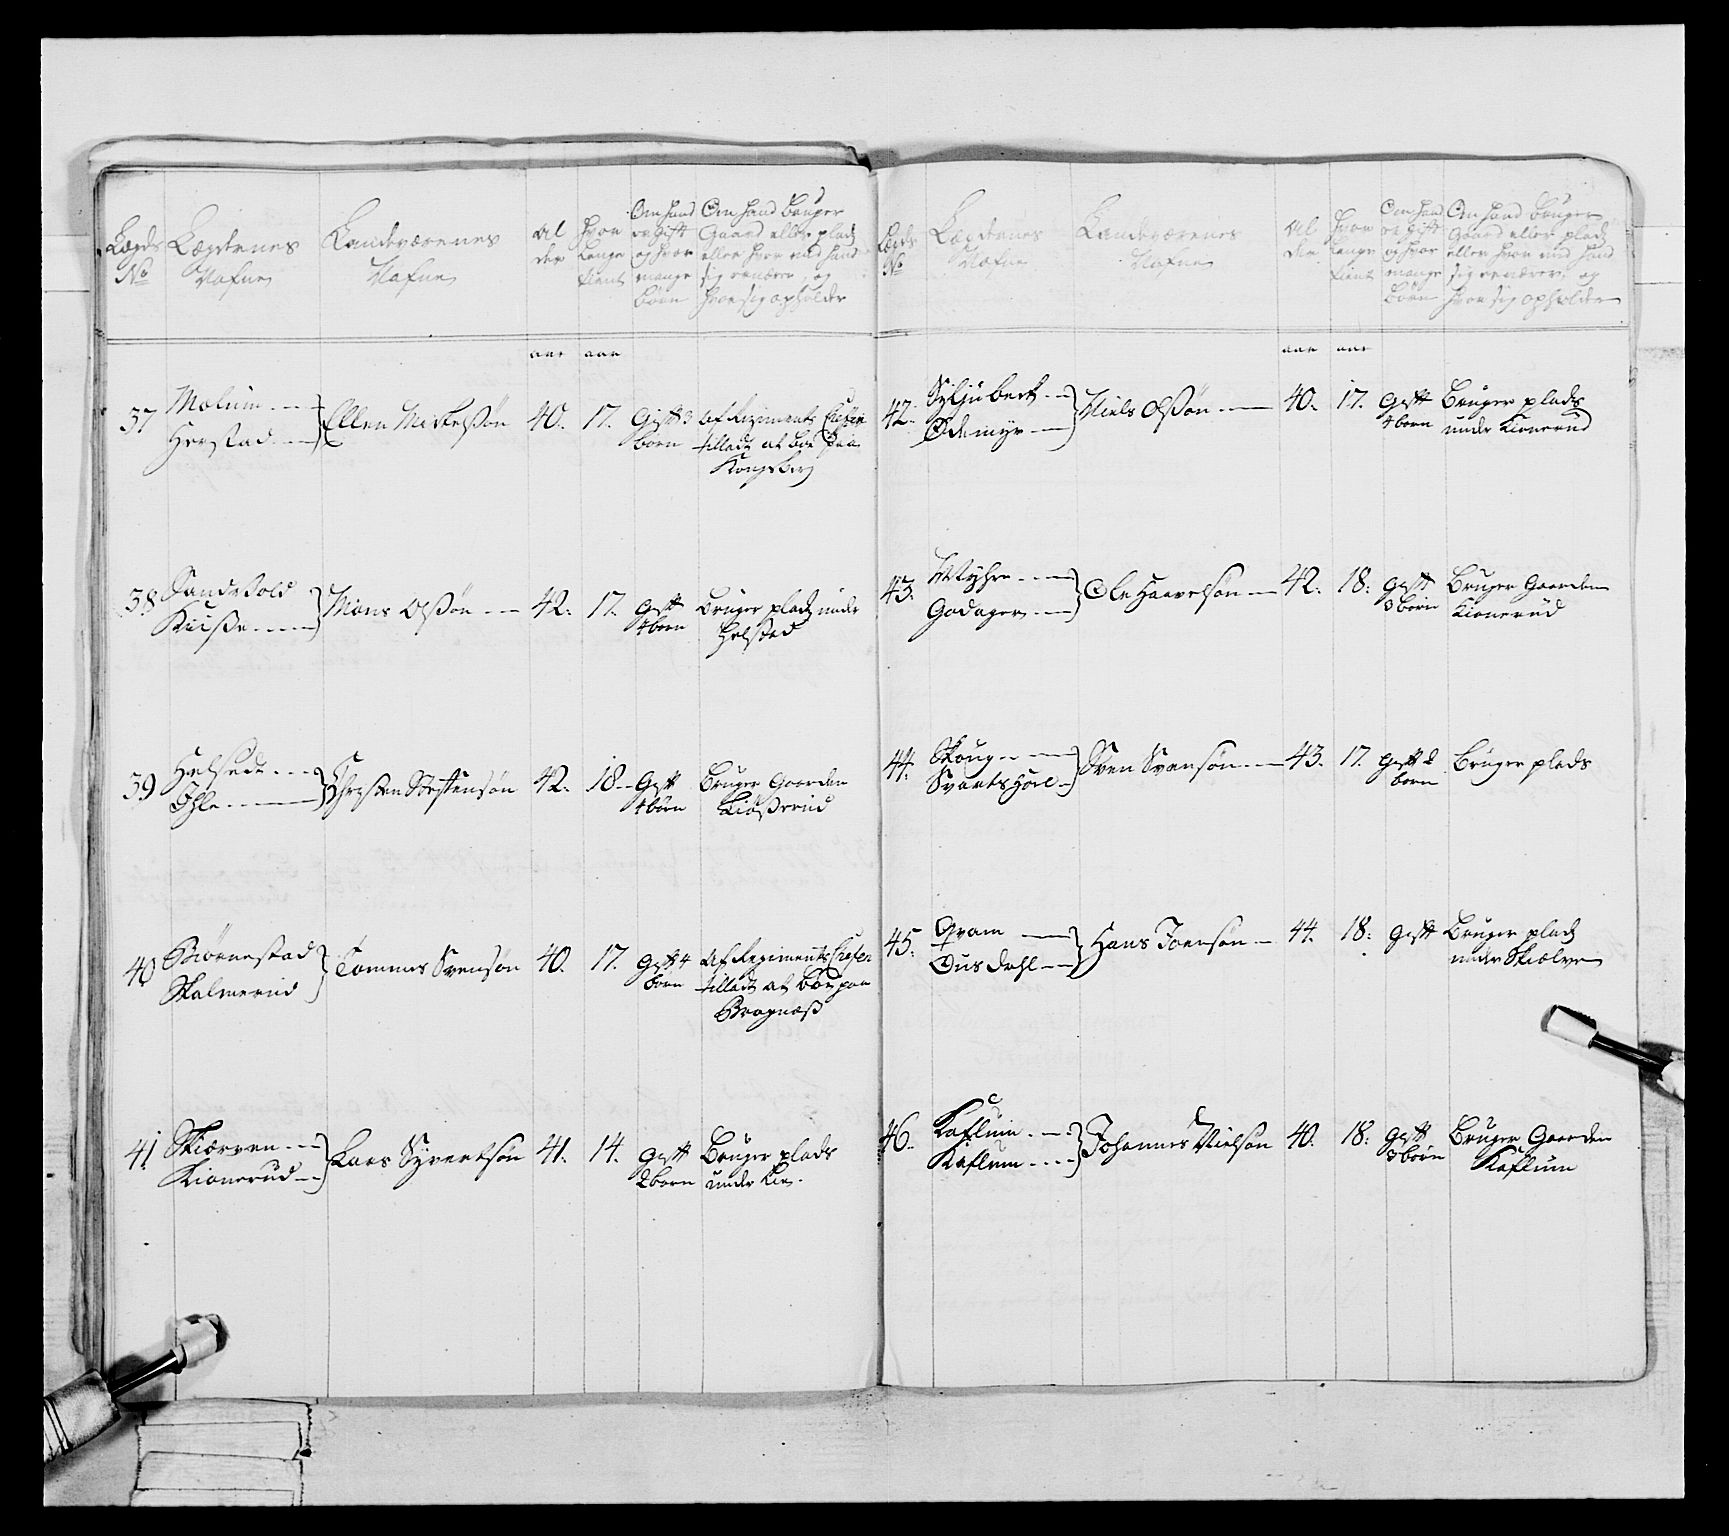 Lægds
No
Lægdernes
Nafne
Landeværnes
Nafne
Al
der
hvor
længe
tient
Om hand
er gift
og hvor
mange
børn
Om hand bruger
Gaard eller plads
eller hvor med hand
sig ernærer, og
hvor sig opholder
aar aar
37 Molum
Herstad
Ellen Mickelsøn 40. 17. Gift 3
børn
Af Regiments Chefen
tilladt at boe paa
Kongsberg
38 Sandsvold
Kruse
Mons Olsøn 42. 17. Gift
4 børn
bruger plads under
Helstad
39 Helsede
Øhle
Christen Torstensøn 42. 18 Gift
4 børn
Bruger Gaarden
Kiøsterud
40 Biørnestad
Skalmerud
Tommes Svensøn 40. 17. Gift 4
børn
Af Regiments Chefen
tilladt at boe paa
Bragnæs
41 Skierven
Kionerud
Lars Syvertsøn 41. 14. Gift
2 børn
Bruger plads
under Lie.
Lægds
No
Lægdernes
Nafne
Landeværnes
Nafne
Al
der
hvor
længe
tient
Om hand
er gift
og hvor
mange
børn
Om hand bruger
Gaard eller plads
eller hvor med hand
sig ernærer, og
hvor sig opholder
aar aar
42. Syljubert
Ødemyr
Niels Olsøn 40. 17. Gift
4 børn
Bruger plads
under Kionerud
43. Myhre
Godager
Ole Haavelsøn 42. 18. Gift
3 børn
Bruger Gaarden
Kionerud
44. Skoug
Svartshoel
Sven Svensøn 43. 17. Gift 2
børn
Bruger plads
45. Qvam
Dusdahl
Hans Joensøn 44. 18. Gift
Bruger plads
under Skiælver
46. Kaflum
Kaflum
Johannes Nielsøn 40. 18. Gift
3 børn
Bruger Gaarden
Kaflum